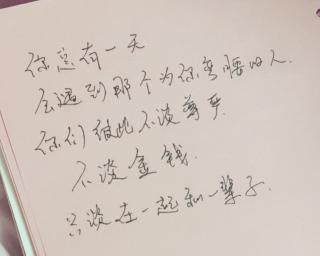 你总有一天
会遇到那个为你弯腰的人
你们彼此不谈尊严
不谈金钱.
只谈在一起和一辈子.